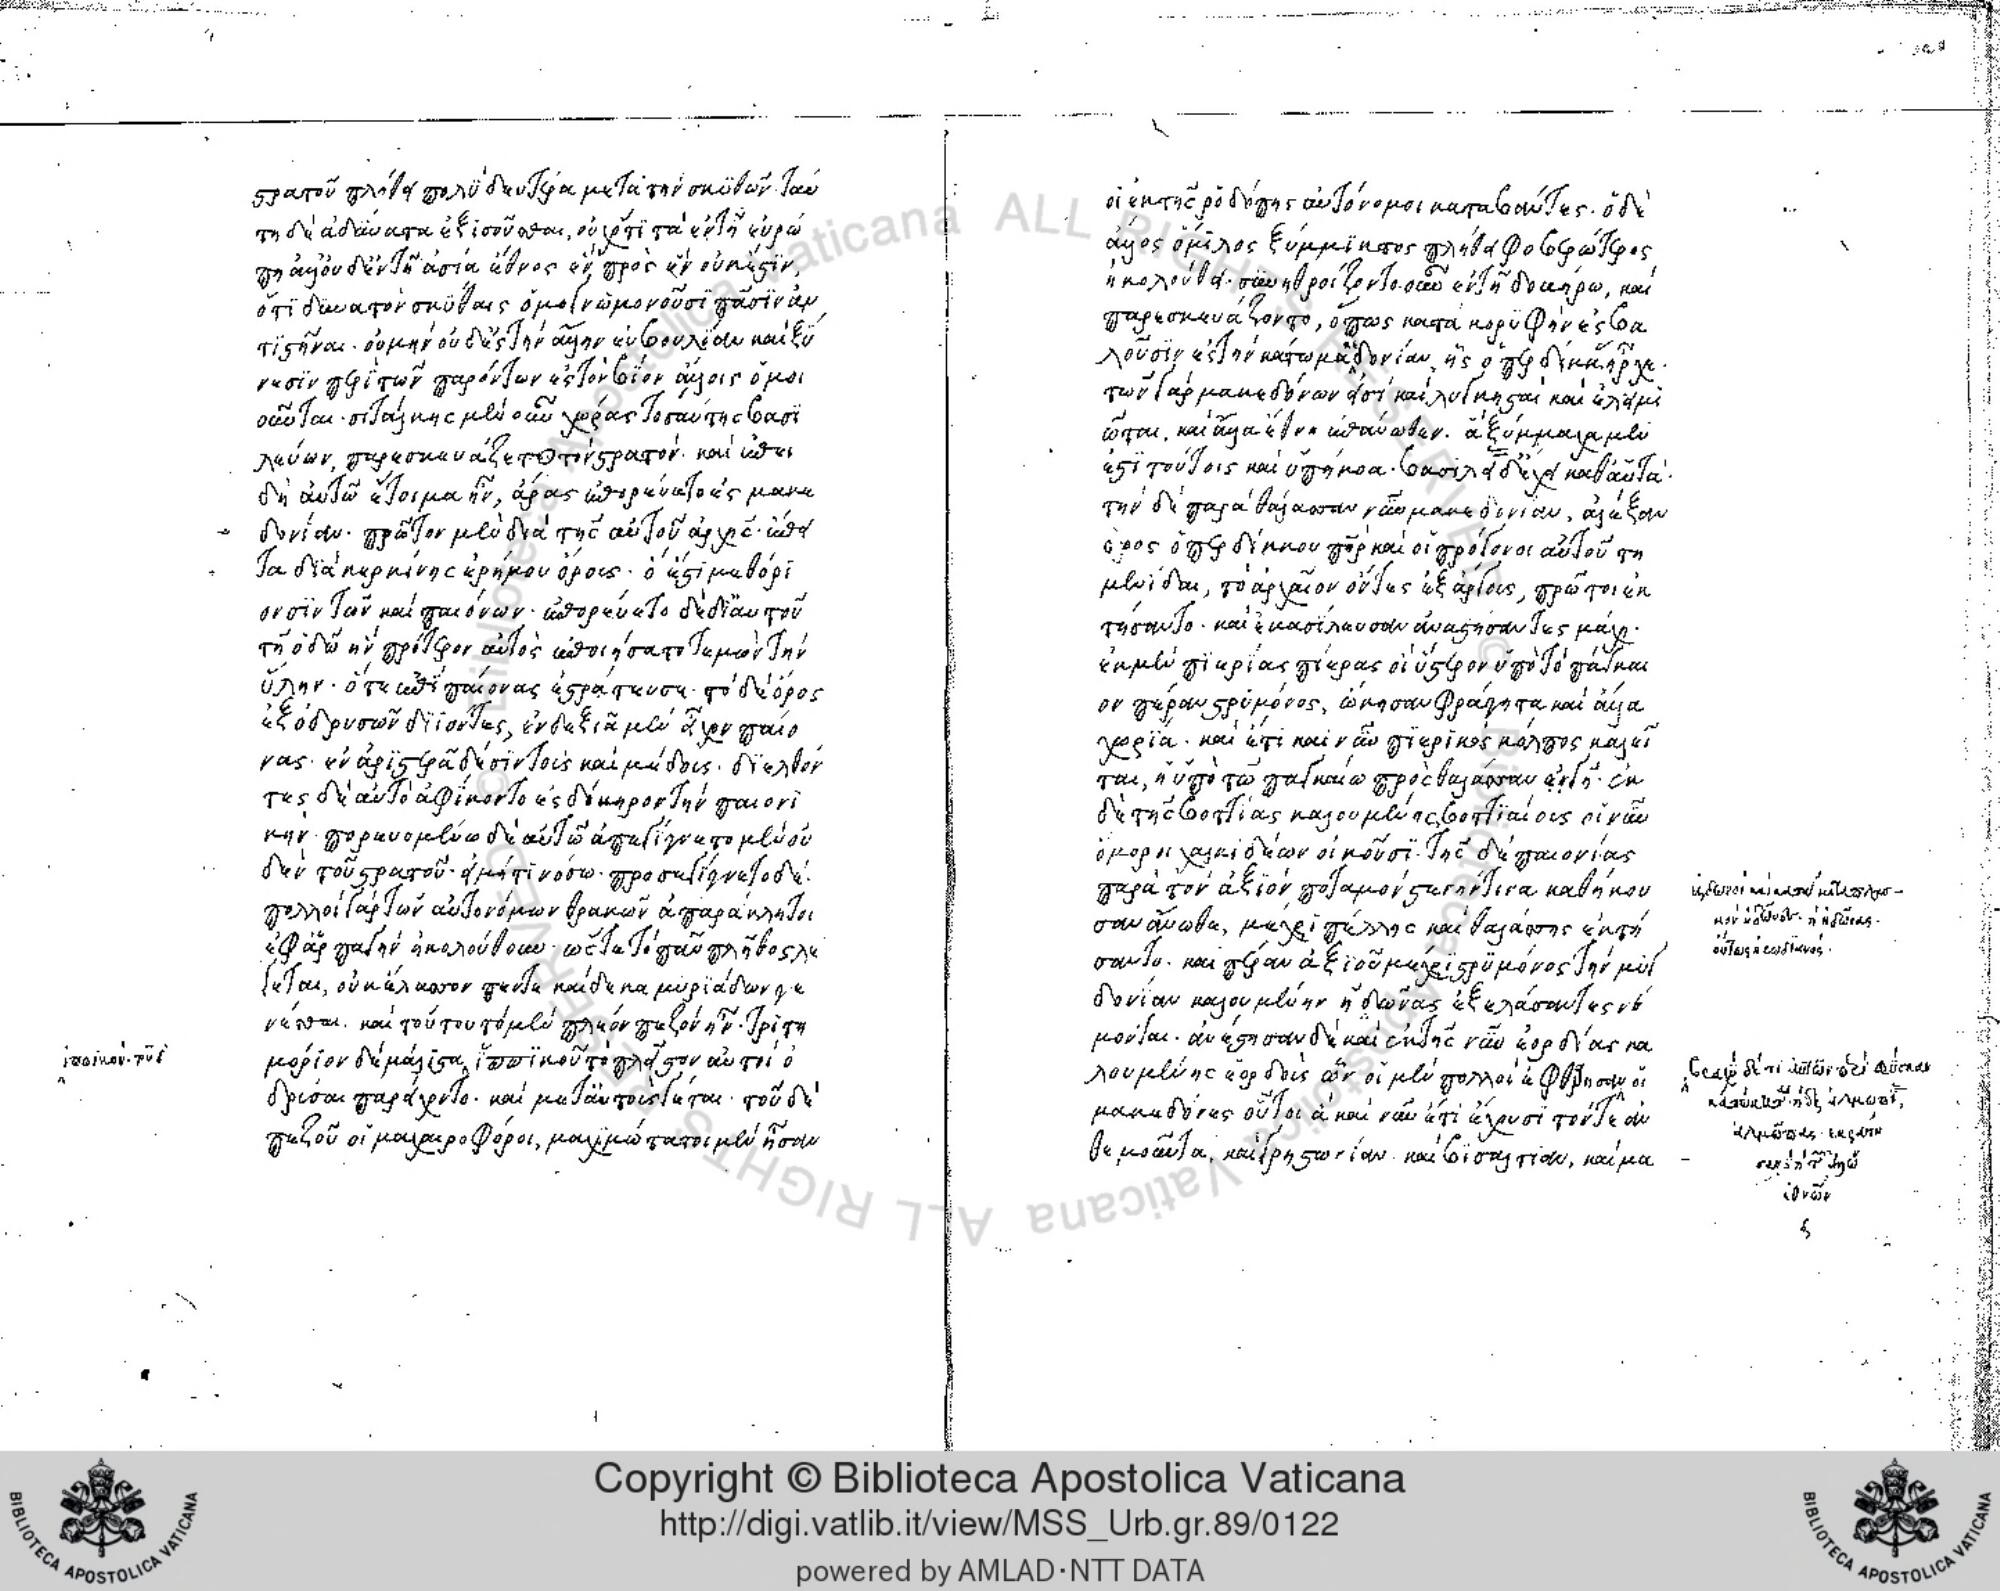 στρατοῦ πλήθει πολὺ δευτέρα μετὰ τὴν σκυθῶν. ταύ
τη δὲ ἀδύνατα ἐξισοῦσθαι, οὐχ ὅτι τὰ ἐν τῆ εὐρώ
πη ἀλλ' οὐδ' ἐν τῆ ἀσία ἔθνος ἓν πρὸς ἓν οὐκ ἔστιν,
ὅτι δυνατὸν σκύθαις ὁμογνωμονοῦσι πᾶσιν ἀν
τιστῆναι. οὐ μὴν οὐδ' ἐς τὴν ἄλλην εὐβουλίαν καὶ ξύ
νεσιν περὶ τῶν παρόντων ἐς τὸν βίον ἄλλοις ὁμοι
οῦνται. σιτάλκης μὲν οὖν χώρας τοσαύτης βασι
λεύων, παρεσκευάζετο τὸν στρατόν. καὶ ἐπει
δὴ αὐτῶ ἕτοιμα ἦν, ἄρας ἐπορεύετο ἐς μακε
δονίαν. πρῶτον μὲν διὰ τῆς αὑτοῦ ἀρχῆς. ἔπει
τα διὰ κερκίνης ἐρήμου ὄρους. ὅ ἐστι μεθόρι
ον σιντῶν καὶ παιόνων. ἐπορεύετο δὲ δι' αὐτοῦ
τῆ ὁδῶ ἣν πρότερον αὐτὸς ἐποιήσατο τεμὼν τὴν
ὕλην. ὅτε ἐπὶ παίονας ἐστράτευσε. τὸ δὲ ὄρος
ἐξ ὀδρυσῶν διϊόντες, ἐν δεξιᾶ μὲν εἶχον παίο
νας. ἐν ἀριστερᾶ δὲ σιντοὺς καὶ μαίδους. διελθόν
τες δὲ αὐτὸ ἀφίκοντο ἐς δόκηρον τὴν παιονι
κήν. πορευομένω δὲ αὐτῶ ἀπεγίγνετο μὲν οὐ
δὲν τοῦ στρατοῦ. εἰ μή τι νόσω. προσεγίγνετο δέ.
πολλοὶ γὰρ τῶν αὐτονόμων θρακῶν ἀπαράκλητοι
ἐφ' ἁρπαγὴν ἠκολούθουν. ὥστε τὸ πᾶν πλῆθος λέ
γεται, οὐκ ἔλασσον πεντεκαίδεκα μυριάδων γε
νέσθαι. καὶ τούτου τὸ μὲν πλέον πεζὸν ἦν. τριτη
μόριον δὲ μάλιστα ἱππικοῦ τὸ πλεῖστον αὐτοὶ ὀ
δρύσαι παρείχοντο. καὶ μετ' αὐτοὺς γέται. τοῦ δὲ
πεζοῦ οἱ μαχαιροφόροι, μαχιμώτατοι μὲν ἦσαν
ἱππικόν. τοῦ δ'
οἱ ἐκ τῆς ῥοδόπης αὐτόνομοι καταβάντες. ὁ δὲ
ἄλλος ὅμιλος ξύμμικτος πλήθει φοβερώτερος
ἠκολούθει. συνηθροίζοντο οὖν ἐν τῆ δοκήρω, καὶ
παρεσκευάζοντο, ὅπως κατὰ κορυφὴν ἐσβα
λοῦσιν ἐς τὴν κάτω μακεδονίαν, ἧς ὁ περδίκκας ἦρχε.
τῶν γὰρ μακεδόνων εἰσὶ καὶ λυγκησταὶ καὶ ἐλειμι
ῶται, καὶ ἄλλα ἔθνη ἐπάνωθεν. ἃ ξύμμαχα μέν
ἐστι τούτοις καὶ ὑπήκοα. βασιλείας δ' ἔχει καθ' αὑτά.
τὴν δὲ παρὰ θάλασσαν νῦν μακεδονίαν, ἀλέξαν
δρος ὁ περδίκκου πατὴρ καὶ οἱ πρόγονοι αὐτοῦ τη
μενίδαι, τὸ ἀρχαῖον ὄντες ἐξ ἄργους, πρῶτοι ἐκ
τήσαντο. καὶ ἐβασίλευσαν ἀναστήσαντες μάχη.
ἐκ μὲν πιερίας πίερας οἳ ὕστερον ὑπὸ τὸ πάγγαι
ον πέραν στρυμόνος, ᾤκησαν φάγρητα καὶ ἄλλα
χωρία. καὶ ἔτι καὶ νῦν πιερικὸς κόλπος καλεῖ
ται, ἡ ὑπὸ τῶ παγγαίω πρὸς θάλασσαν γῆ. ἐκ
δὲ τῆς βοττίας καλουμένης βοττιαίους οἳ νῦν
ὅμοροι χαλκιδέων οἰκοῦσι. τῆς δὲ παιονίας
παρὰ τὸν ἀξιὸν ποταμὸν στενήν τινα καθήκου
σαν ἄνωθεν, μέχρι πέλλης καὶ θαλάσσης ἐκτή
σαντο. καὶ πέραν ἀξιοῦ μέχρι στρυμόνος τὴν μυγ
δονίαν καλουμένην ἠδῶνας ἐξελάσαντες νέ
μονται. ἀνέστησαν δὲ καὶ ἐκ τῆς νῦν ἐορδίας κα
λουμένης ἐορδοὺς ὧν οἱ μὲν πολλοὶ ἐφθάρησαν οἱ
μακεδόνες οὗτοι ἃ καὶ νῦν ἔτι ἔχουσι τόν τε ἀν
θεμοῦντα, καὶ γρηστωνίαν. καὶ βισαλτίαν, καὶ μα
οὕτως ἡρωδιανός.
ἀλμῶπας. ἐκράτη
ἐθνῶν
Copyright © Biblioteca Apostolica Vaticana
http://digi.vatlib.it/view/MSS_Urb.gr.89/0122
powered by AMLAD·NTT DATA
BIBLIOTECA APOSTOLICA VATICANA
BIBLIOTECA APOSTOLICA VATICANA
© Biblioteca Apostolica Vaticana ALL RIGHTS RESERVED
© Biblioteca Apostolica Vaticana ALL RIGHTS RESERVED